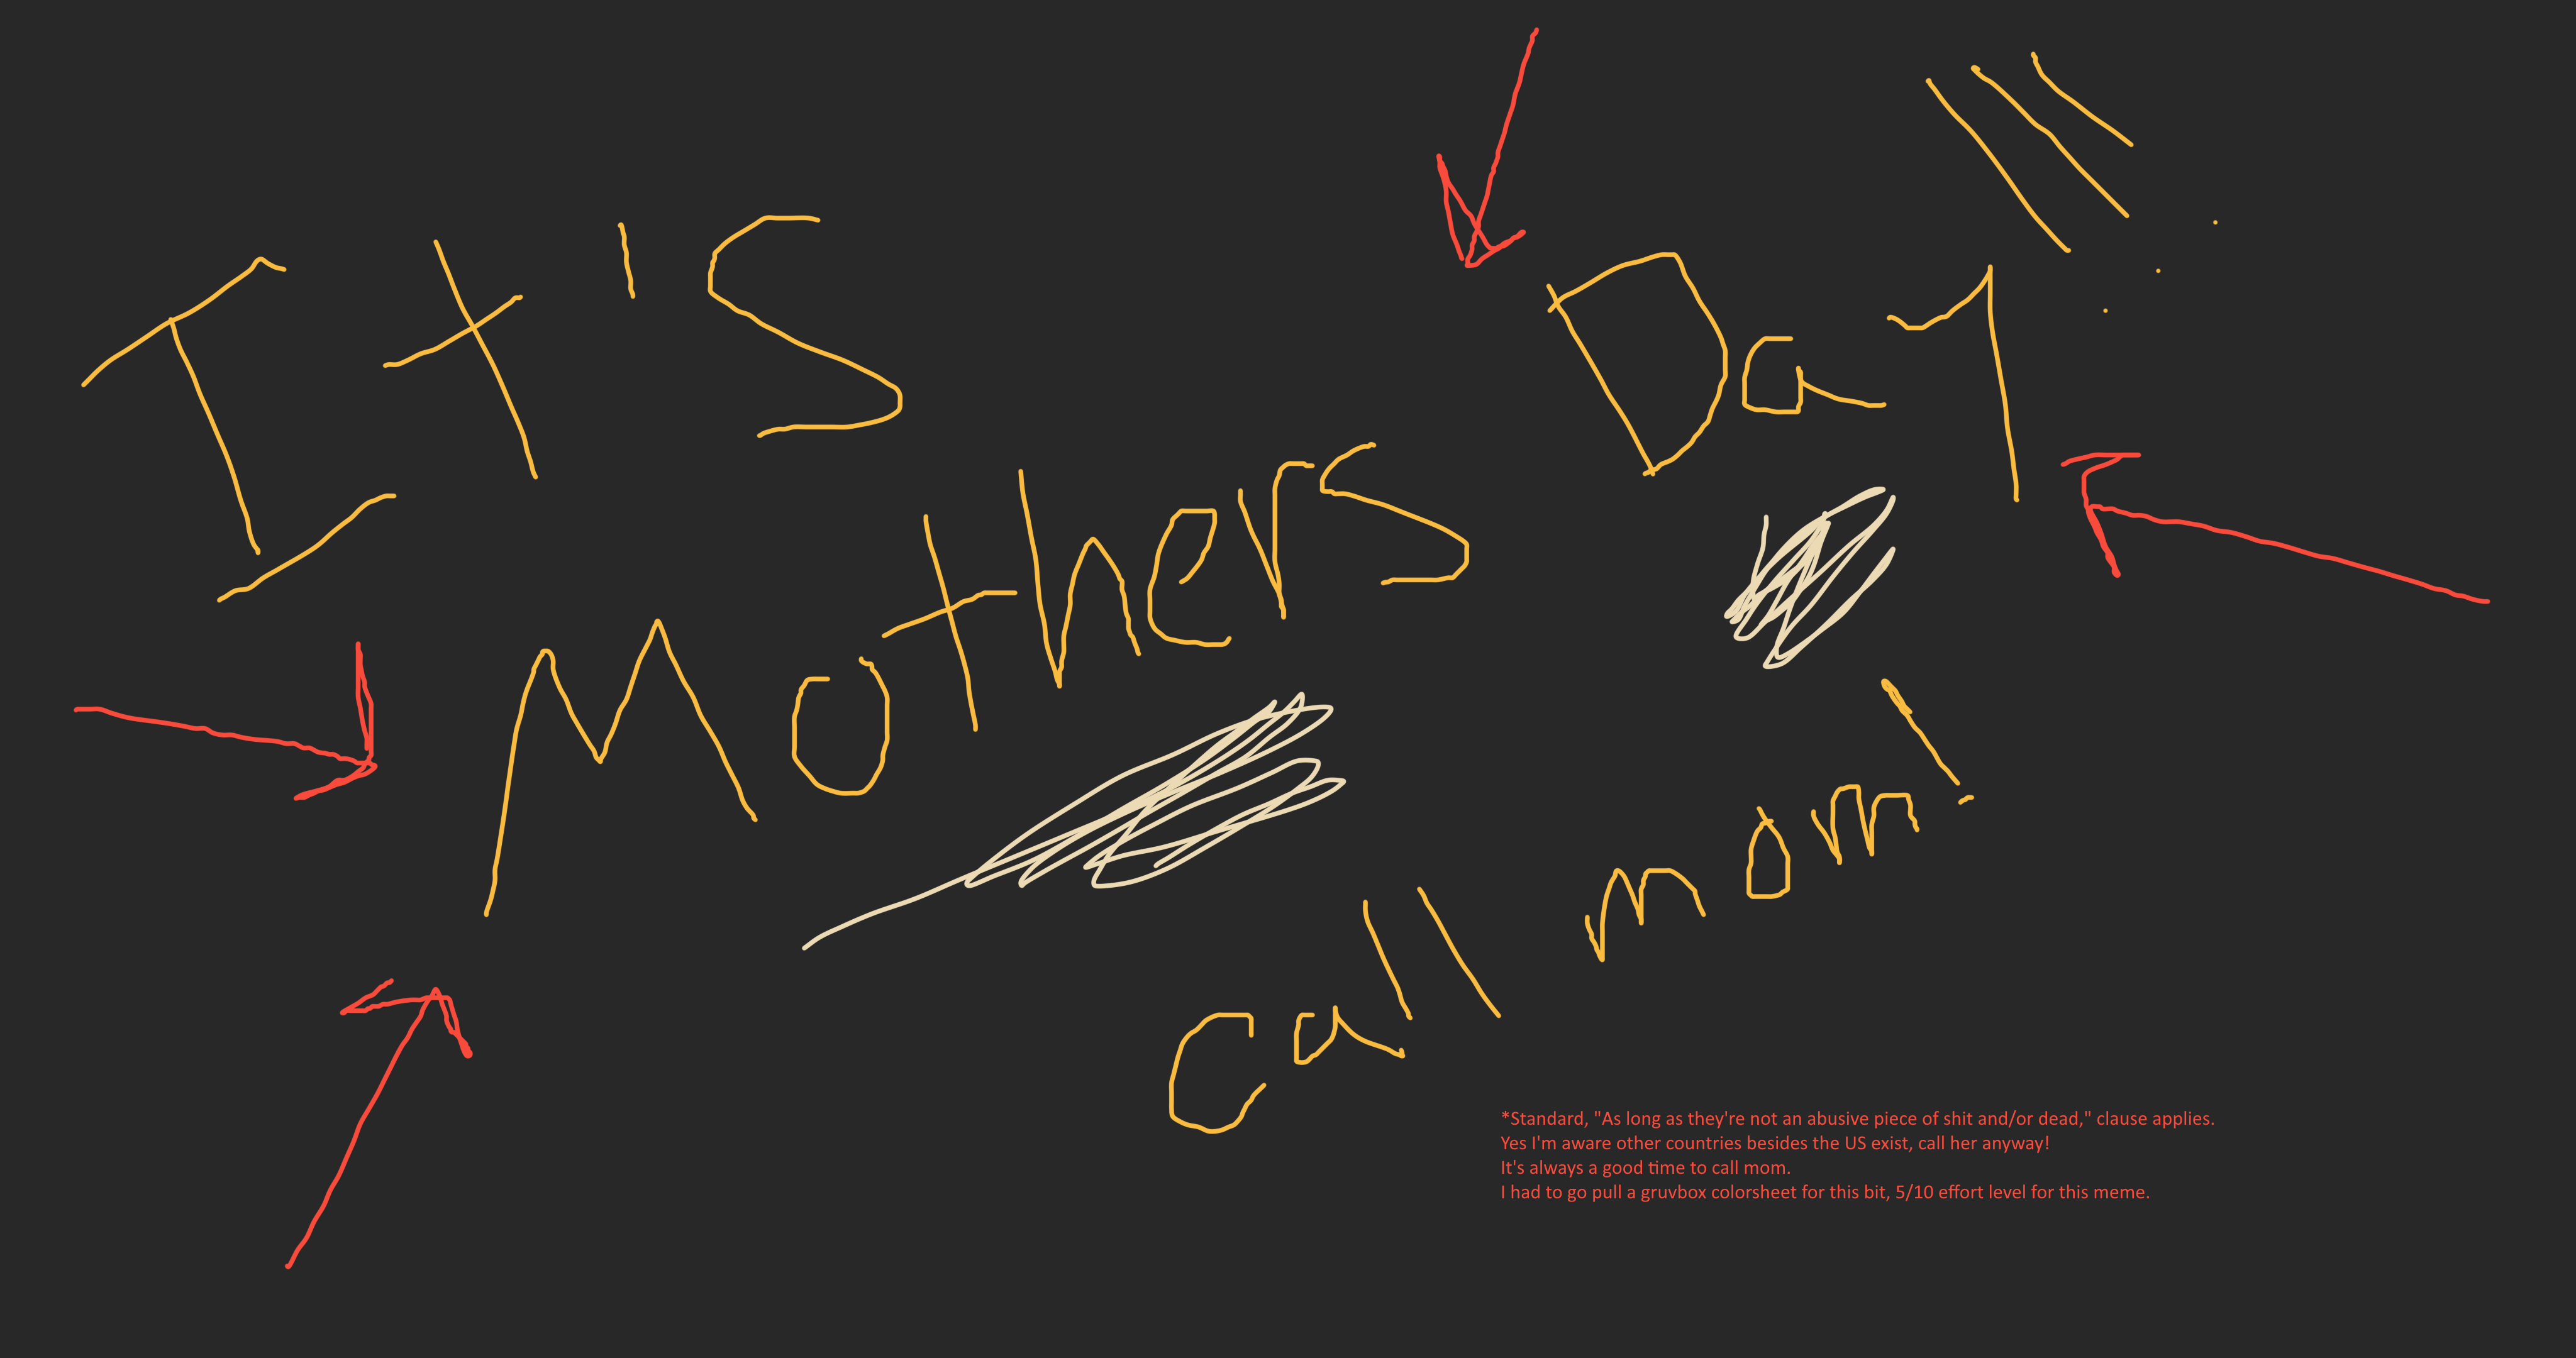 It's
Mothers
Day!!!
Call mom!
*Standard, "As long as they're not an abusive piece of shit and/or dead," clause applies.
Yes I'm aware other countries besides the US exist, call her anyway!
It's always a good time to call mom.
I had to go pull a gruvbox colorsheet for this bit, 5/10 effort level for this meme.